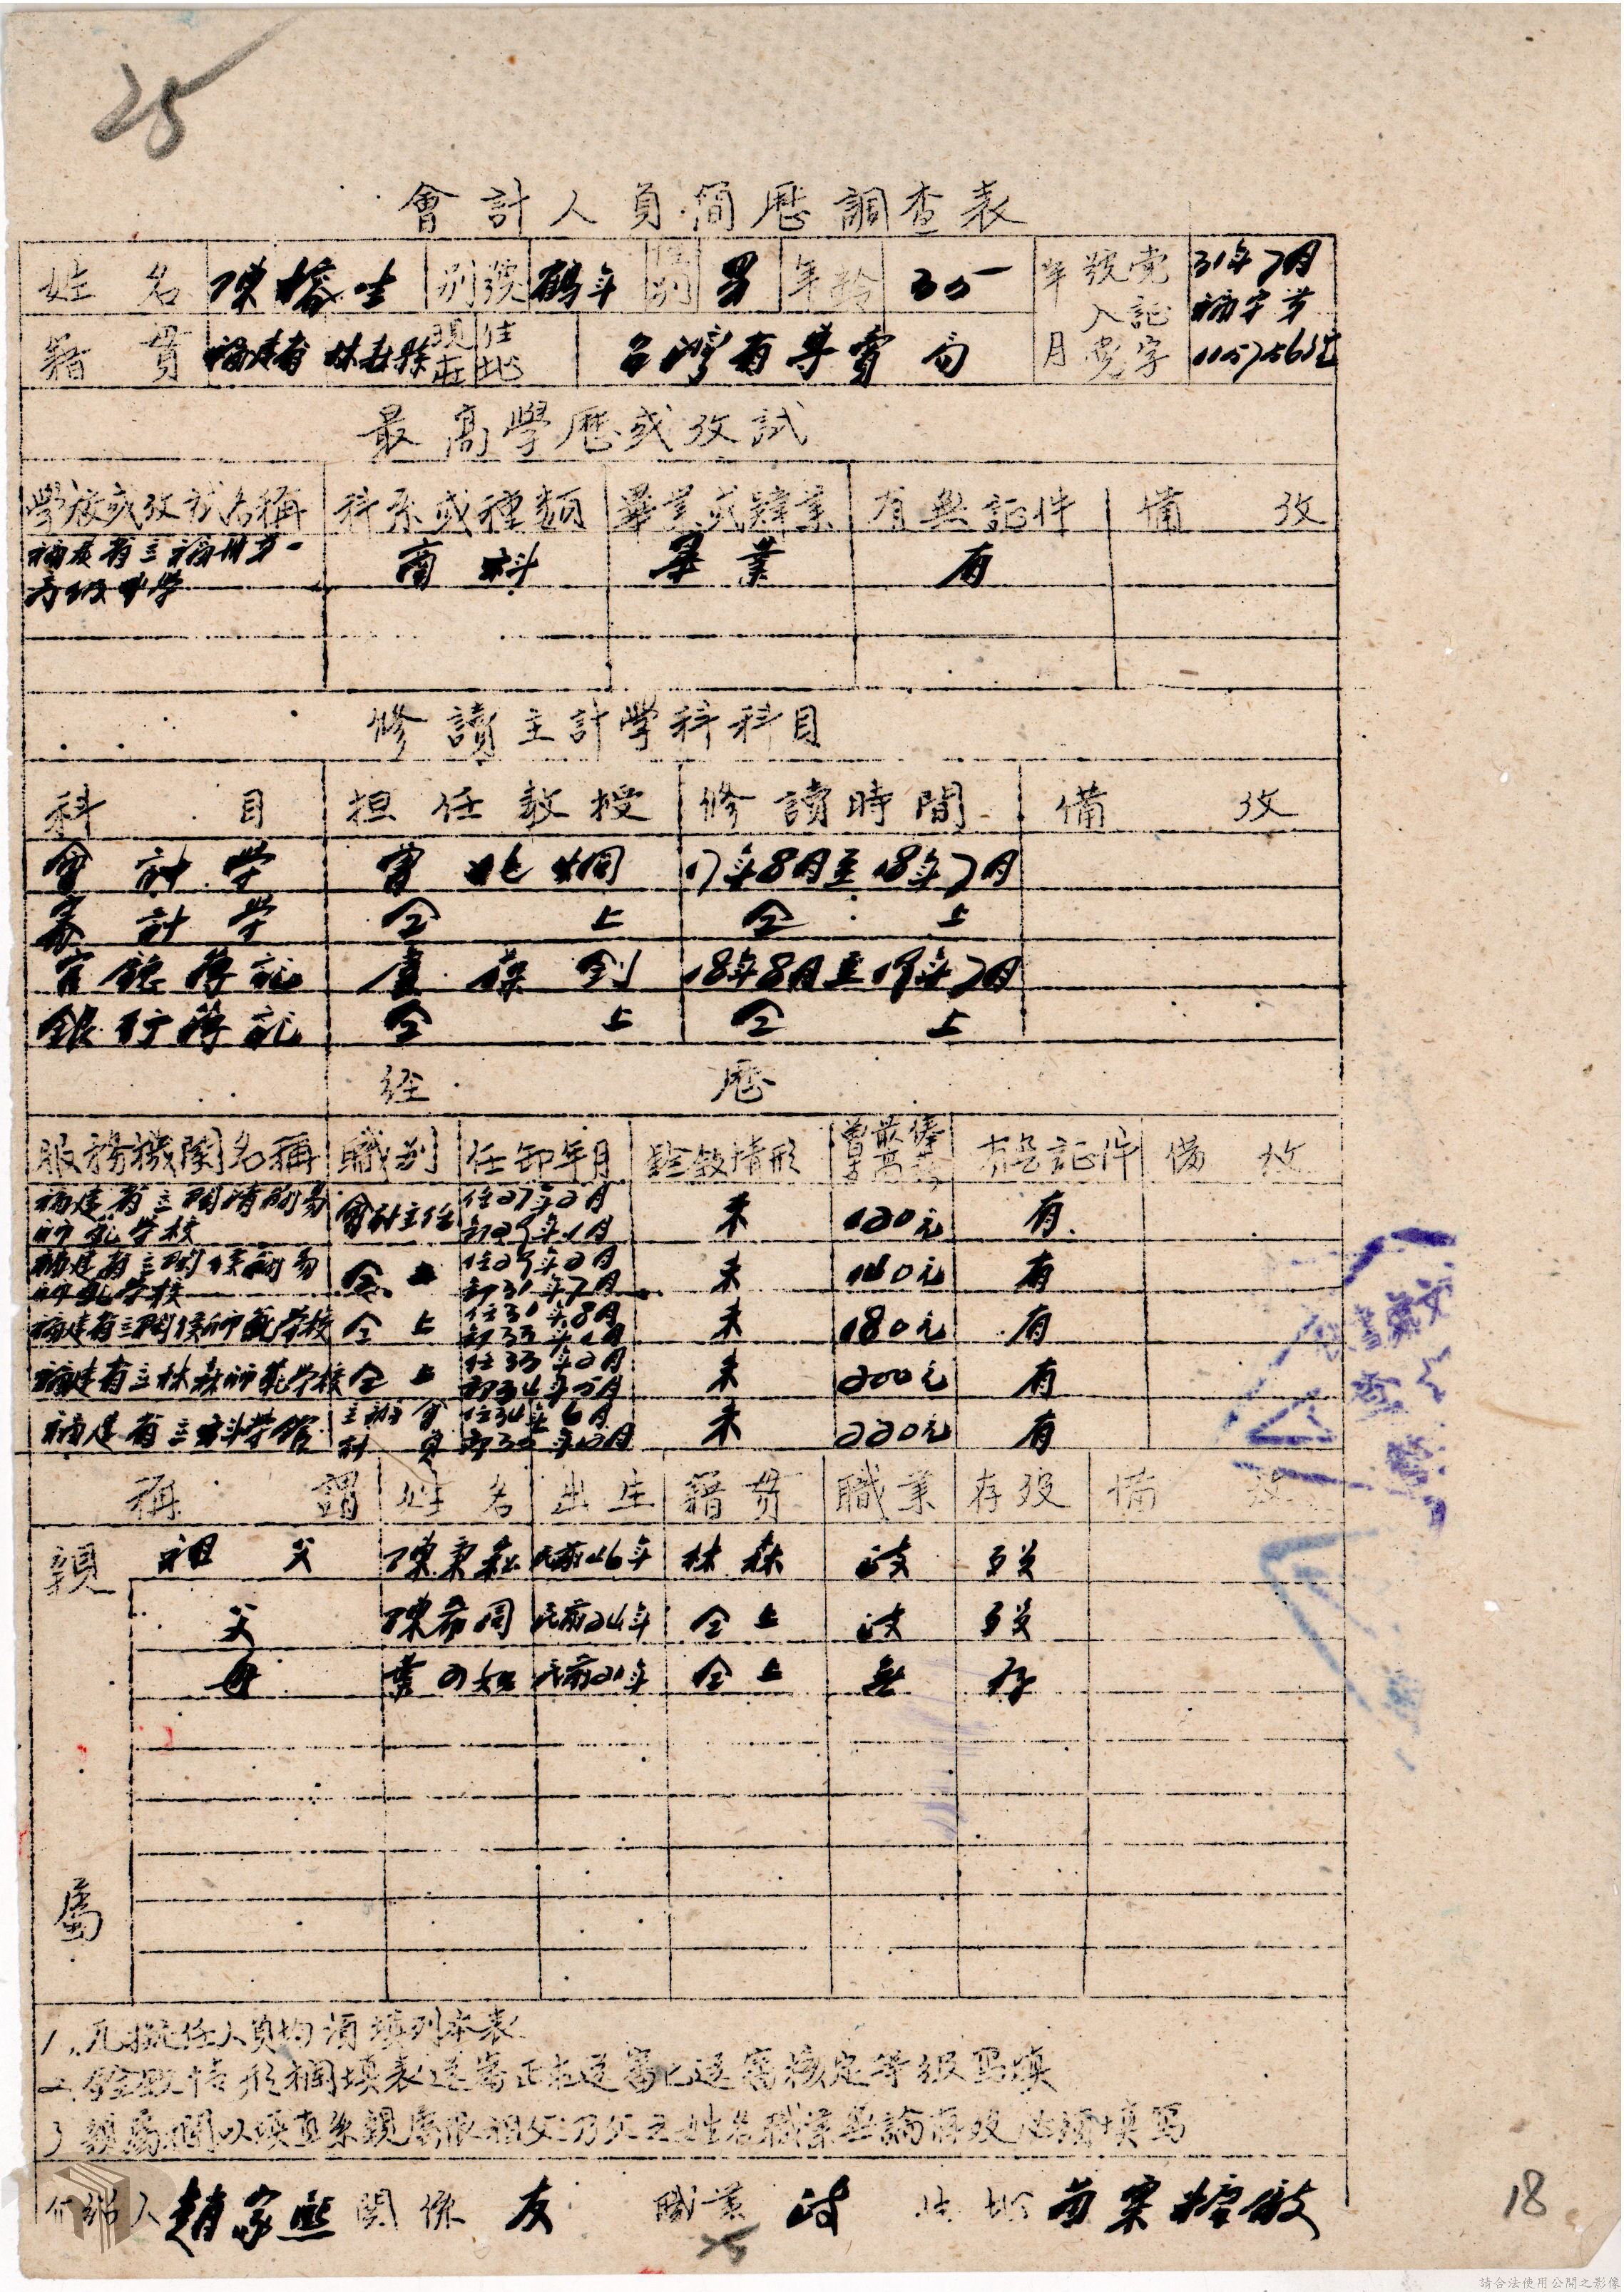 25
會計人員簡歷調查表
姓名 陳榕生 別號 鶴年 性別 男 年齡 35 年月 入黨 黨証字號 31年7月
福字第
籍貫 福建省林森縣 現在住址 台灣省專賣局
最高學歷或攷試
學校或攷試名稱 科系或種類 畢業或肄業 有無証件 備攷
福建省立福州第一 商科 畢業 有
高級中學
修讀主計學科科目
科目 担任教授 修讀時間 備攷
會計學 曾兆炯 17年8月至18年7月
審計學 仝上 仝上
官廳簿記 18年8月至19年7月
銀行簿記 仝上 仝上
經歷
服務機関名稱 職別 任卸年月 銓敘情形 曾支最高俸薪 有無証件 備攷
福建省立閩清簡易師範學校 會計主任 任27年2月 卸29年1月 未 120元 有
福建省立閩侯簡易師範學校 仝上 任29年2月 卸31年7月 未 160元 有
福建省立閩侯師範學校 仝上 任31年8月 卸33年1月 未 180元 有
福建省立林森師範學校 仝上 任33年2月 卸34年5月 未 200元 有
福建省立科學館 主辦會計員 任34年6月 卸35年12月 未 220元 有
親屬
稱謂 姓名 出生 籍貫 職業 存歿 備攷
祖父 民前46年 林森 政 歿
父 陳希周 民前24年 仝上 政 歿
母 葉可如 民前21年 仝上 無 存
1、凡擬任人員均須填列本表
二、銓敘情形欄填表送審正在送審已送審核定等級寫填
3 親屬欄以填直系親屬限祖父母父之姓名職業無論存歿必須填寫
介紹人 趙家熙 関係 友 職業 政 住址
25
18
請合法使用公開之影像